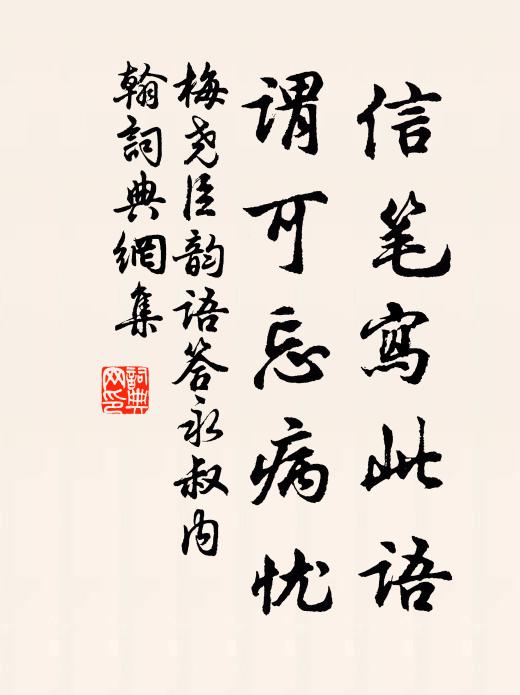 信笔寫此语
谓可忘病忧
梅尧臣韵语答永叔内
翰詞典網集
詞典网印